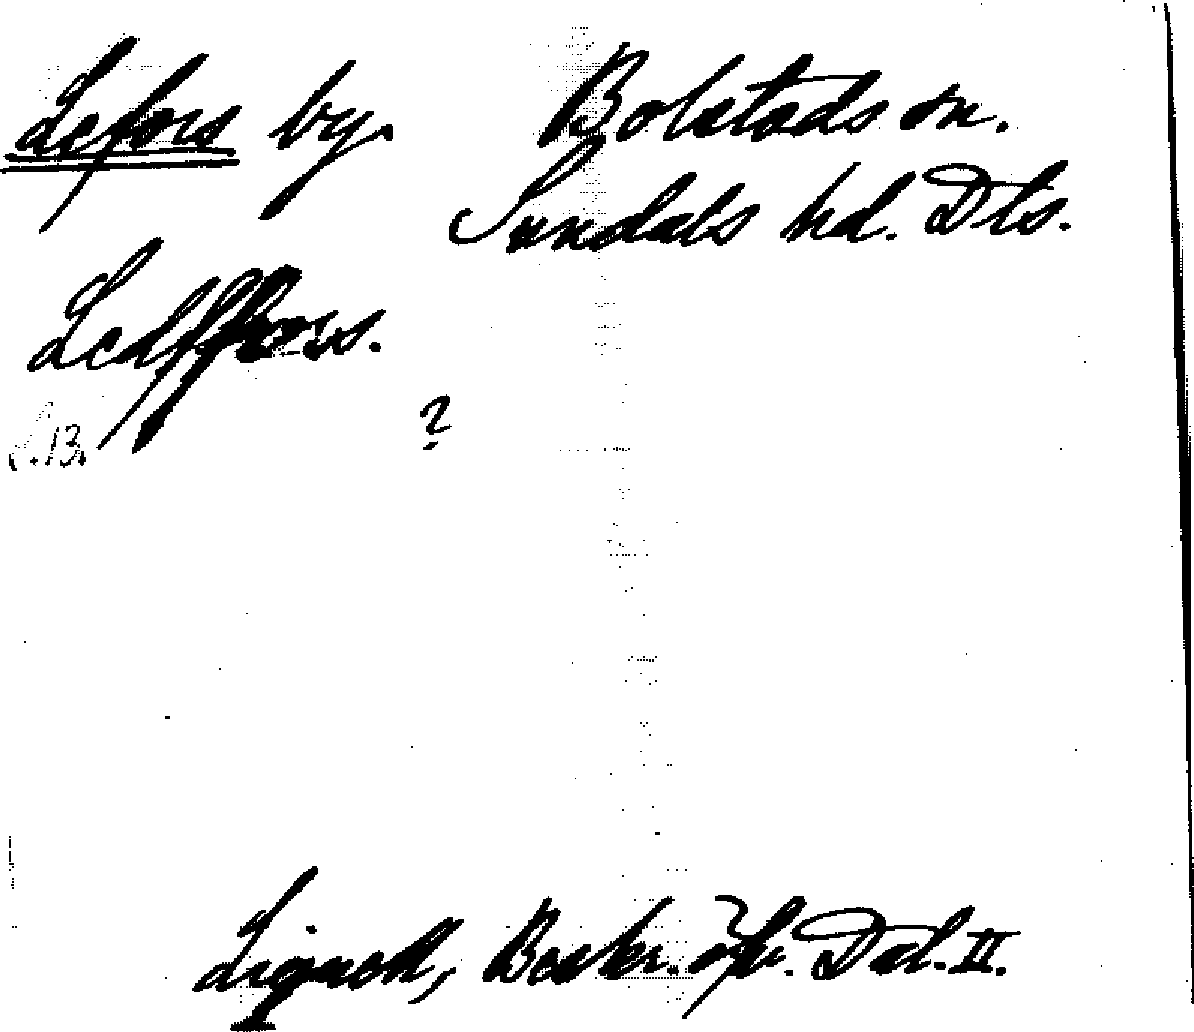 Lefors by. Bolstads sn.
Sundals hd. Dls.
Ledffors.
L. B.
?
Lignell, Beskr. öfv. Dal. II.